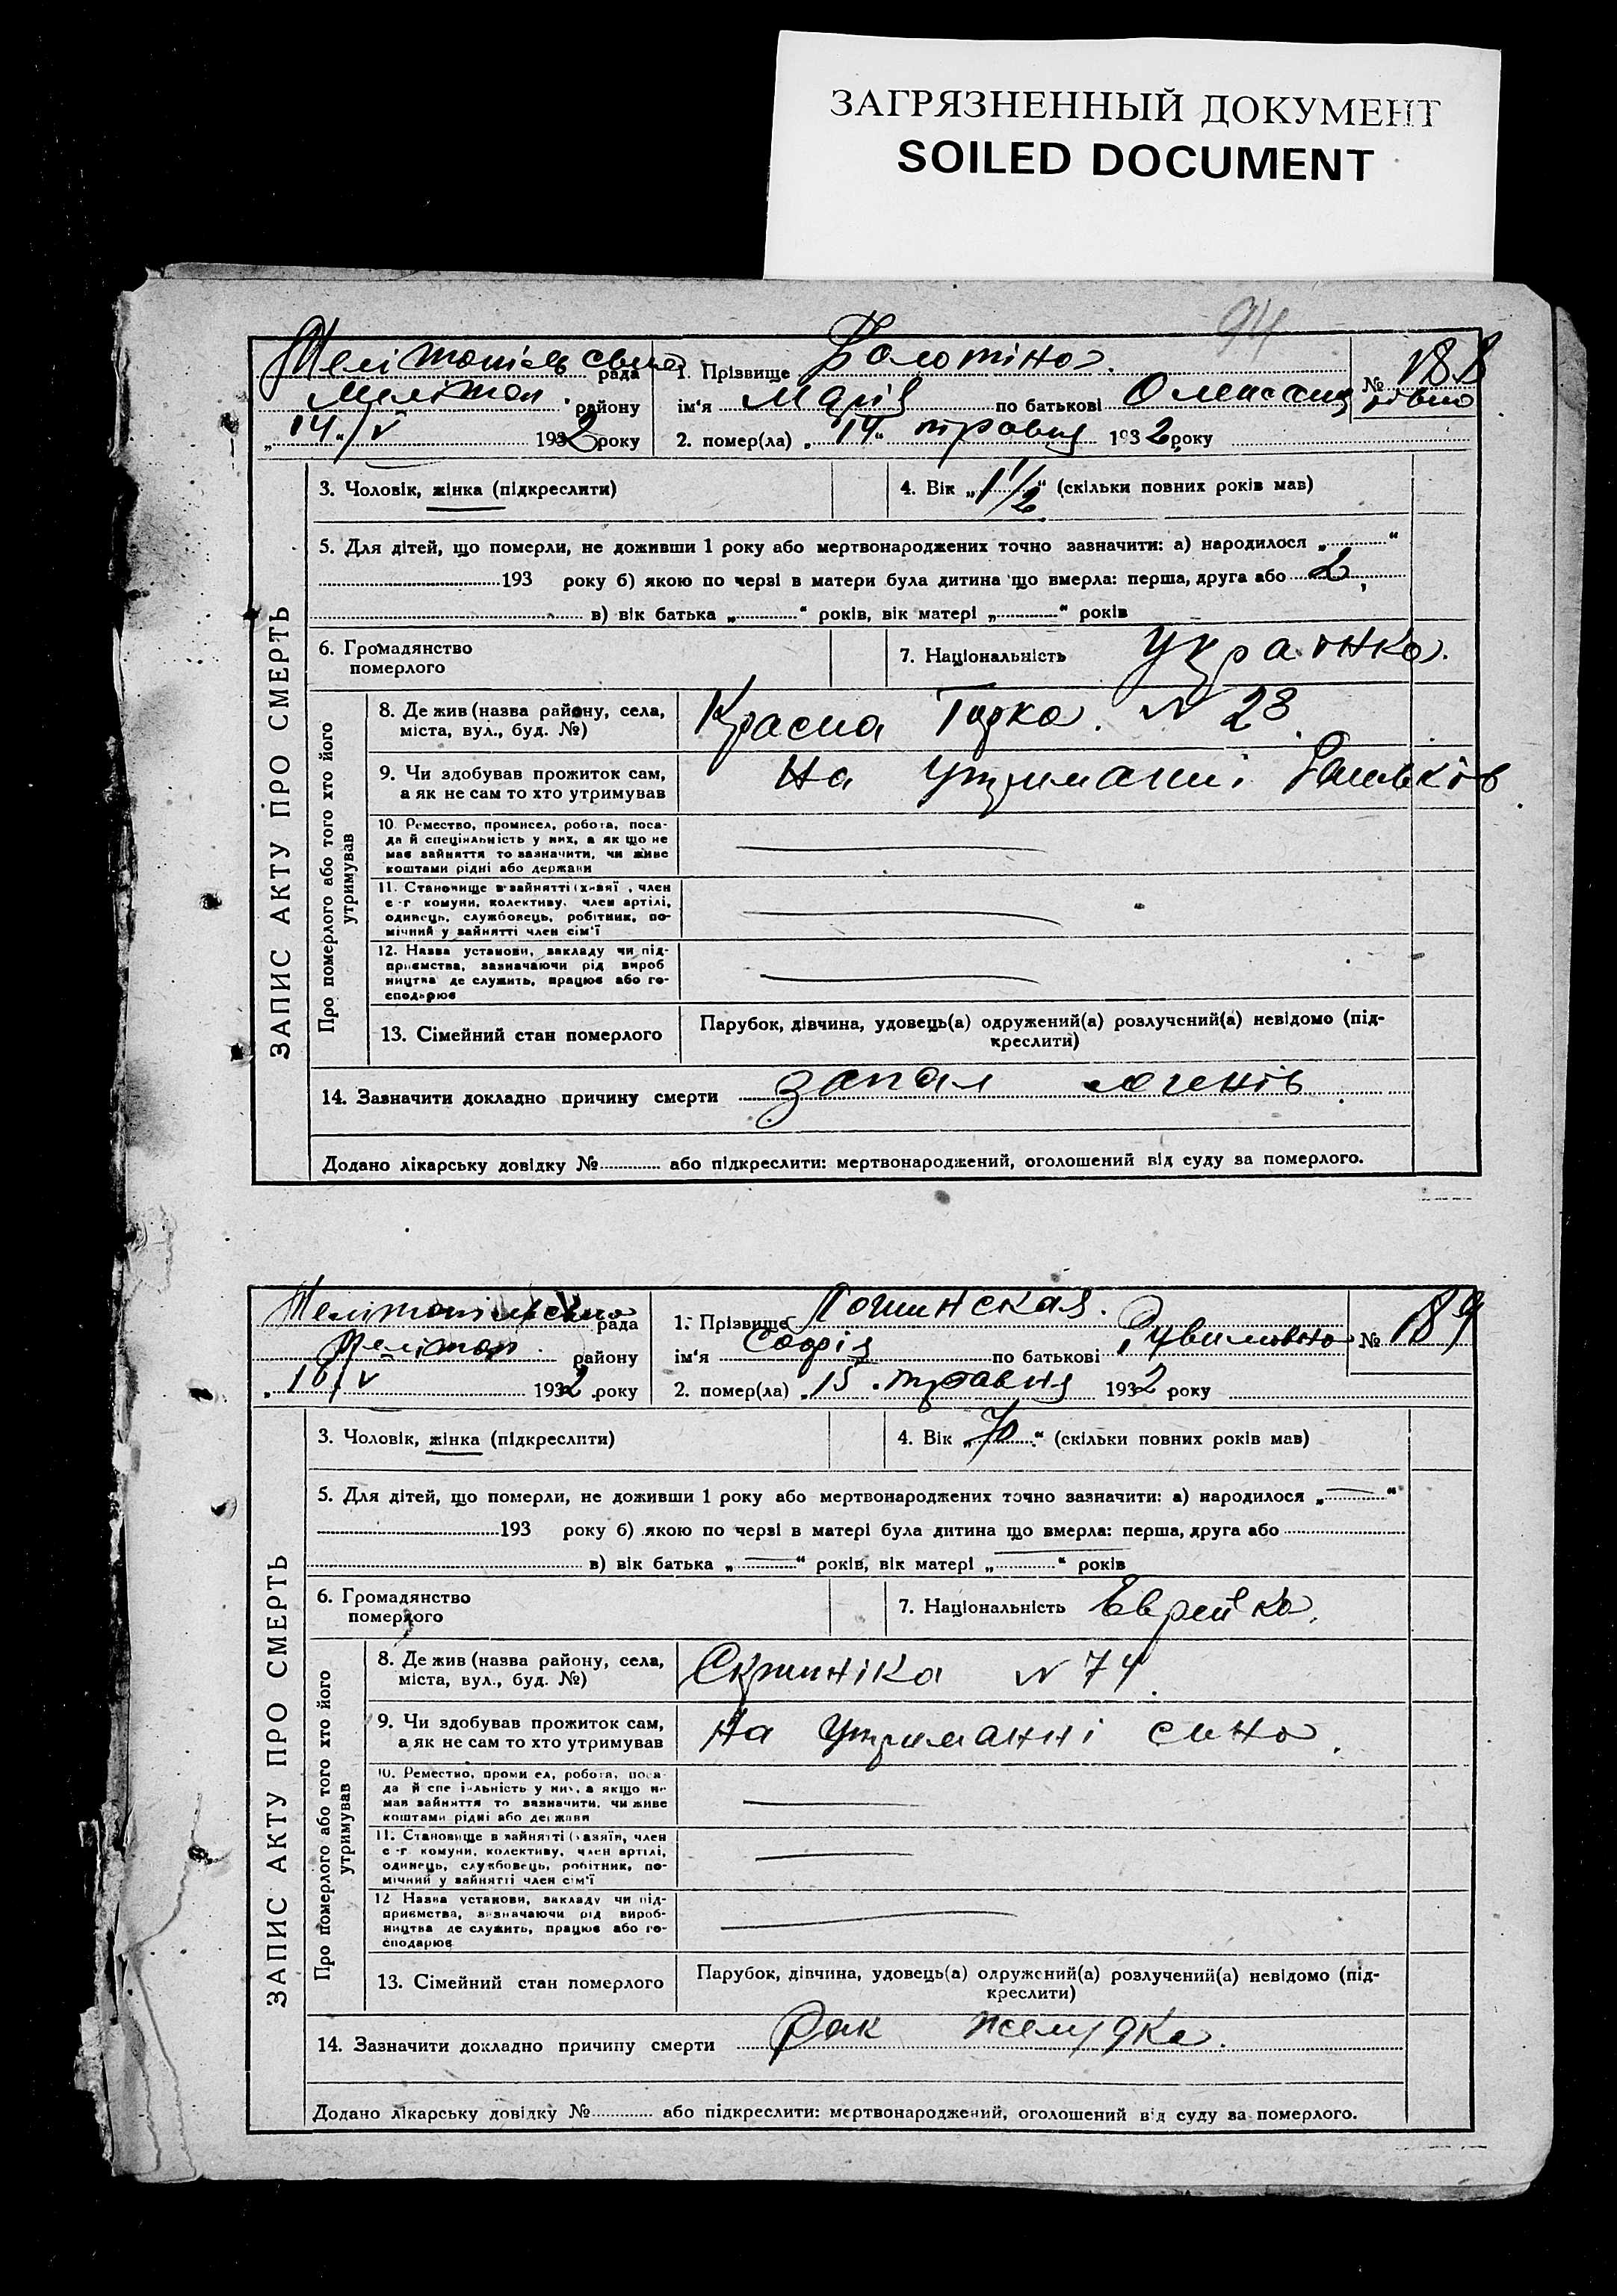 ЗАГРЯЗНЕННЫЙ ДОКУМЕНТ
SOILED DOCUMENT
94
Мелітопільська рада
1. Прізвище Болотіна.
№ 188
Мелітоп. району
ім'я Марія по батькові
„14„/V 1932 року
2. помер(ла) „14“ травня 1932 року
ЗАПИС АКТУ ПРО СМЕРТЬ
3. Чоловік, жінка (підкреслити)
4. Вік „1 1/2“ (скільки повних років мав)
5. Для дітей, що померли, не доживши 1 року або мертвонароджених точно зазначити: а) народилося „ “
193 року б) якою по черзі в матери була дитина що вмерла: перша, друга або 2,
в) вік батька „ “ років, вік матері „ “ років
6. Громадянство померлого
7. Національність Українка.
Про померлого або того хто його утримував
8. Де жив (назва району, села,
міста, вул., буд. №)
Красна Горка. N 28.
9. Чи здобував прожиток сам,
а як не сам то хто утримував
На утриманні батьків
10. Ремество, промисел, робота, поса-
да й спеціяльність у них, а як що не
має зайняття то зазначити, чи живе
коштами рідні або держави
11. Становище в зайнятті (хазяї, член
с-г комуни, колективу, член артілі,
одинець, службовець, робітник, по-
мічний у зайнятті член сім'ї
12. Назва установи, закладу чи під-
приємства, зазначаючи рід вироб
ництва де служить, працює або го-
сподарює
13. Сімейний стан померлого
Парубок, дівчина, удовець(а) одружений(а) розлучений(а) невідомо (під-
креслити)
14. Зазначити докладно причину смерти запал легенів.
Додано лікарську довідку № або підкреслити: мертвонароджений, оголошений від суду за померлого.
Мелітопільська рада
1. Прізвище
№ 189
Мелітоп. району
ім'я Софія по батькові Рувимовна
„16/V 1932 року
2. помер(ла) „15 „травня 1932 року
ЗАПИС АКТУ ПРО СМЕРТЬ
3. Чоловік, жінка (підкреслити)
4. Вік „70“ (скільки повних років мав)
5. Для дітей, що померли, не доживши 1 року або мертвонароджених точно зазначити: а) народилося „ “
193 року б) якою по черзі в матері була дитина що вмерла: перша, друга або
в) вік батька „ “ років, вік матері „ “ років
6. Громадянство померлого
7. Національність Еврейка.
Про померлого або того хто його утримував
8. Де жив (назва району, села,
міста, вул., буд. №)
Скрипніка N 74.
9. Чи здобував прожиток сам,
а як не сам то хто утримував
На утриманні сина.
10. Ремество, промисел, робота, поса-
да й спеціяльність у них, а якщо не
має зайняття то зазначити, чи живе
коштами рідні або держави
11. Становище в зайнятті (хазяїн, член
с-г комуни, колективу, член артілі,
одинець, службовець, робітник, по-
мічний у зайнятті член сім'ї
12 Назва установи, закладу чи під-
приємства, зазначаючи рід вироб-
ництва де служить, працює або го-
сподарює
13. Сімейний стан померлого
Парубок, дівчина, удовець(а) одружений(а) розлучений(а) невідомо (під-
креслити)
14. Зазначити докладно причину смерти Рак желудка.
Додано лікарську довідку № або підкреслити: мертвонароджений, оголошений від суду за померлого.